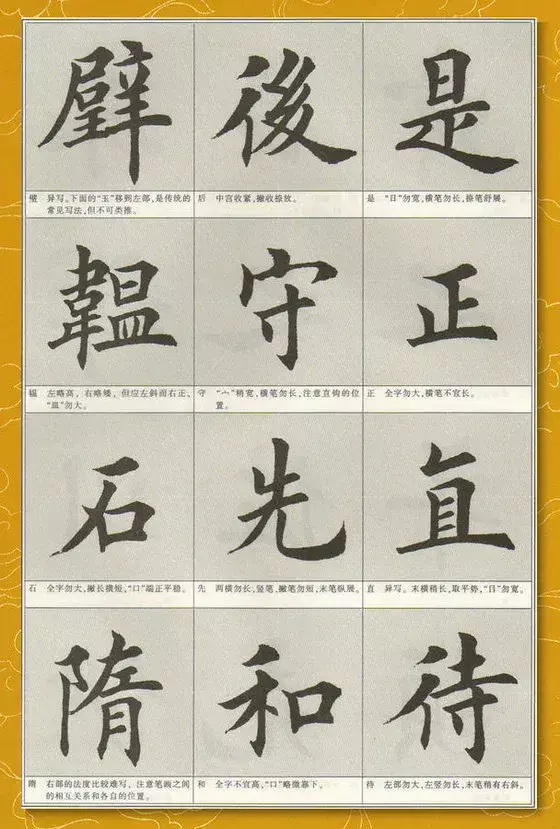 璧
後
是
璧 异写。下面的“玉”移到左部,是传统的
常见写法,但不可类推。
后 中宫收紧,撇收捺放。
是 “日”勿宽,横笔勿长,捺笔舒展。
韞
守
正
韫 左略高,右略矮,但应左斜而右正、
“昷”勿大。
守 “宀”稍宽,横笔勿长,注意直钩的位
置。
正 全字勿大,横笔不宜长。
石
先
直
石 全字勿大,撇长横短,“口”端正平稳。
先 两横勿长,竖笔、撇笔勿短,末笔纵展。
直 异写。末横稍长,取平势,“目”勿宽。
隋
和
待
隋 右部的法度比较难写,注意笔画之间
的相互关系和各自的位置。
和 全字不宜高,“口”略微靠下。
待 左部勿大,左竖勿长,末笔稍有右斜。